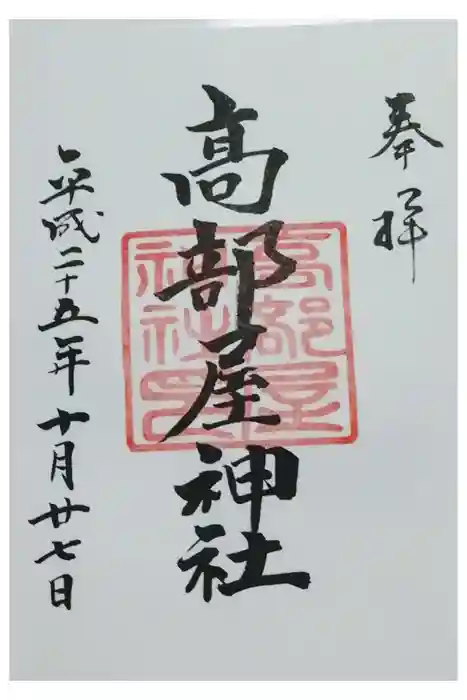 奉拝
高部屋神社
高部屋神社印
平成二十五年十月廿七日